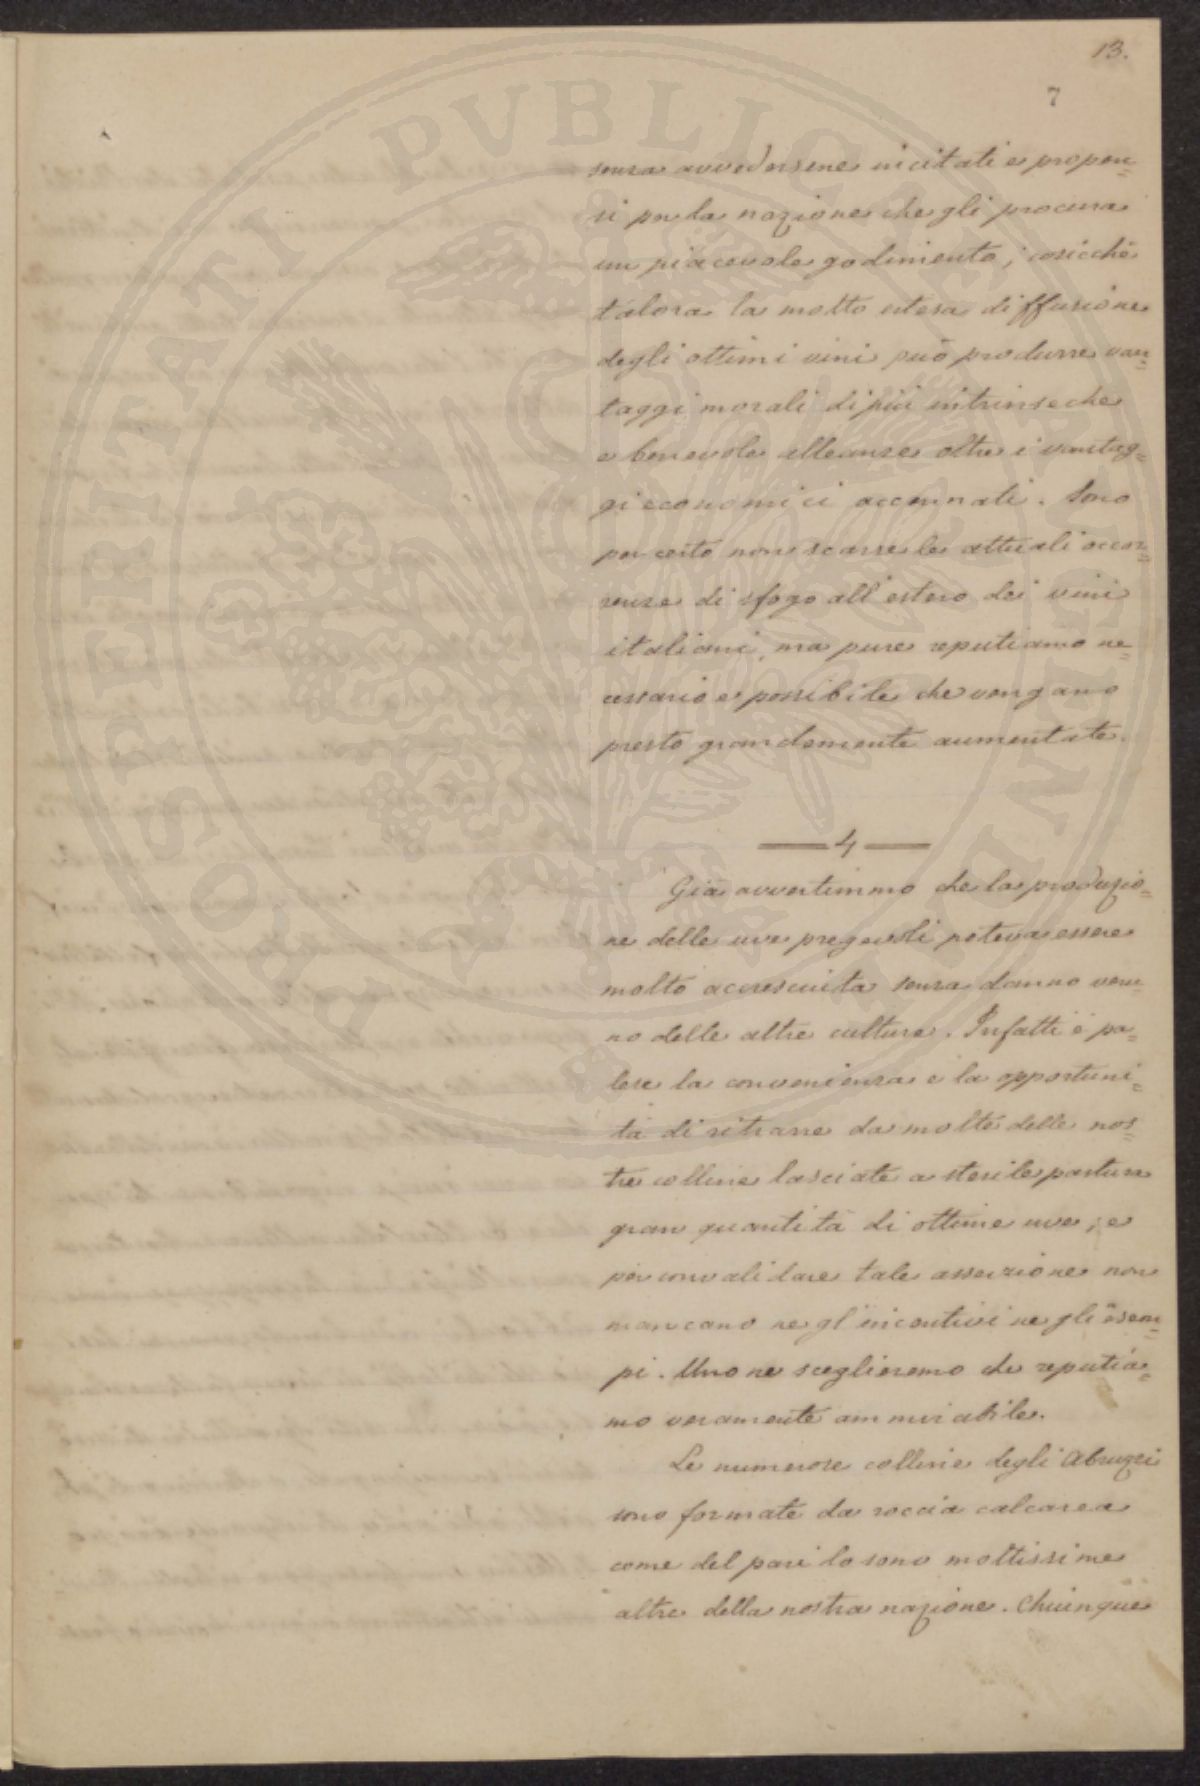 13.
7
senza avvedersene incitati e propen=
si per la nazione che gli procura
un piacevole godimento; cosicchè
talora la molto estesa diffusione
degli ottimi vini può produrre van=
taggi morali di più intrinseche
e benevole alleanze oltre i vantag=
gi economici accennati. Sono
per certo non scarse le attuali occor=
renze di sfogo all'estero dei vini
italiani, ma pure reputiamo ne=
cessario e possibile che vengano
presto grandemente aumentate.
— 4 —
Già avvertimmo che la produzio=
ne delle uve pregevoli poteva essere
molto accresciuta senza danno veru=
no delle altre culture. Infatti è pa=
lese la convenienza e la opportuni=
tà di ritrarre da molte delle nos=
tre colline lasciate a sterile pastura
gran quantità di ottime uve; e
per convalidare tale asserzione non
mancano ne gl'incentivi ne gli esem=
pi. Uno ne sceglieremo che reputia=
mo veramente ammirabile.
Le numerose colline degli Abruzzi
sono formate da roccia calcarea
come del pari lo sono moltissime
altre della nostra nazione. Chiunque
PROSPERITATI PVBLICAE